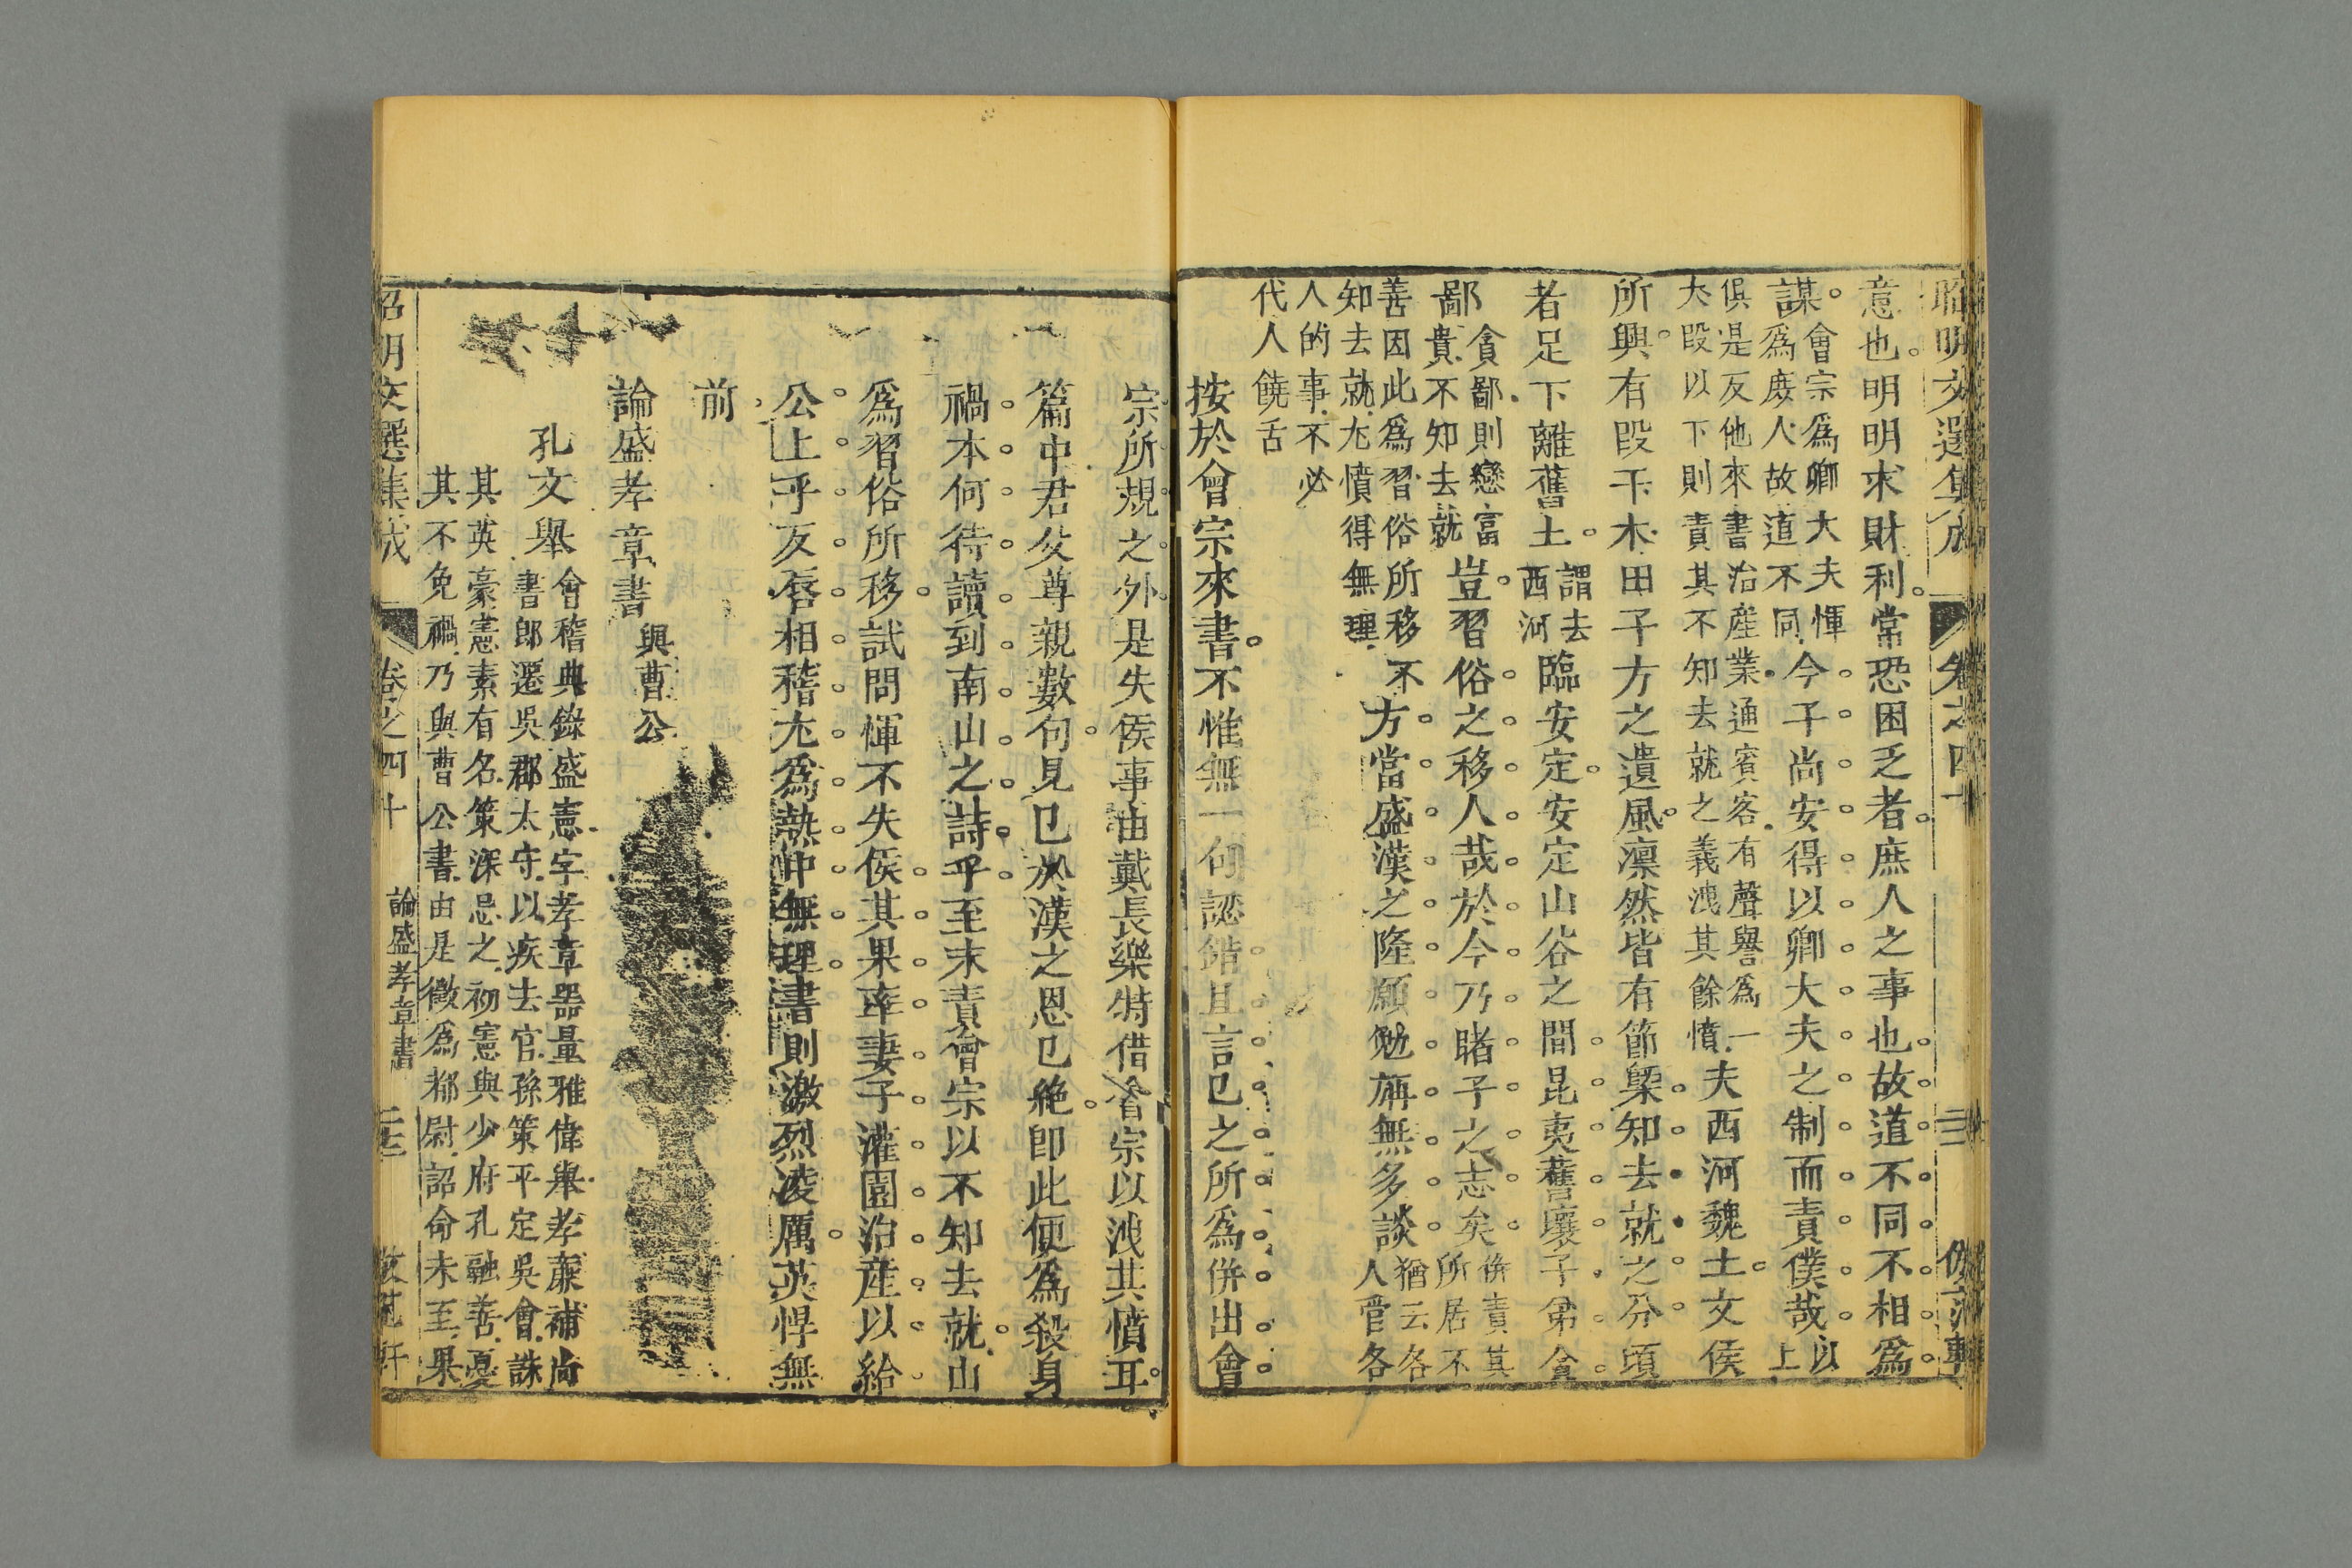 昭明文選集成 卷之四十
意也明明求財利常恐困乏者庶人之事也故道不同不相爲
謀會宗爲卿大夫惲爲庶人故道不同今子尚安得以卿大夫之制而責僕哉以上
俱是反他來書治產業通賓客有聲譽爲一大段以下則責其不知去就之義洩其餘憤夫西河魏土文侯
所興有段干木田子方之遺風凛然皆有節槩知去就之分頃
者足下離舊土謂去西河臨安定安定山谷之間昆夷舊壤子弟貪
鄙貪鄙則戀富貴不知去就豈習俗之移人哉於今乃睹子之志矣併責其所居不
善因此爲習俗所移不知去就尤憤得無理方當盛漢之隆願勉旃無多談猶云各人管各
人的事不必代人饒舌
按於會宗來書不惟無一句認錯且言已之所爲併出會
宗所規之外是失侯事由戴長樂特借會宗以洩其憤耳
篇中君父尊親數句見已於漢之恩已絶卽此便爲殺身
禍本何待讀到南山之詩乎至末責會宗以不知去就山
爲習俗所移試問惲不失侯其果率妻子灌園治產以給
公上乎反唇相稽尤爲熱中無理書則激烈凌厲英悍無
前
論盛孝章書 與曹公
孔文舉會稽典錄盛憲字孝章器量雅偉舉孝廉補尚書郎遷吳郡太守以疾去官孫策平定吳會誅
其英豪憲素有名策深忌之初憲與少府孔融善憂其不免禍乃與曹公書由是徵爲都尉詔命未至果
昭明文選集成 卷之四十 論盛孝章書